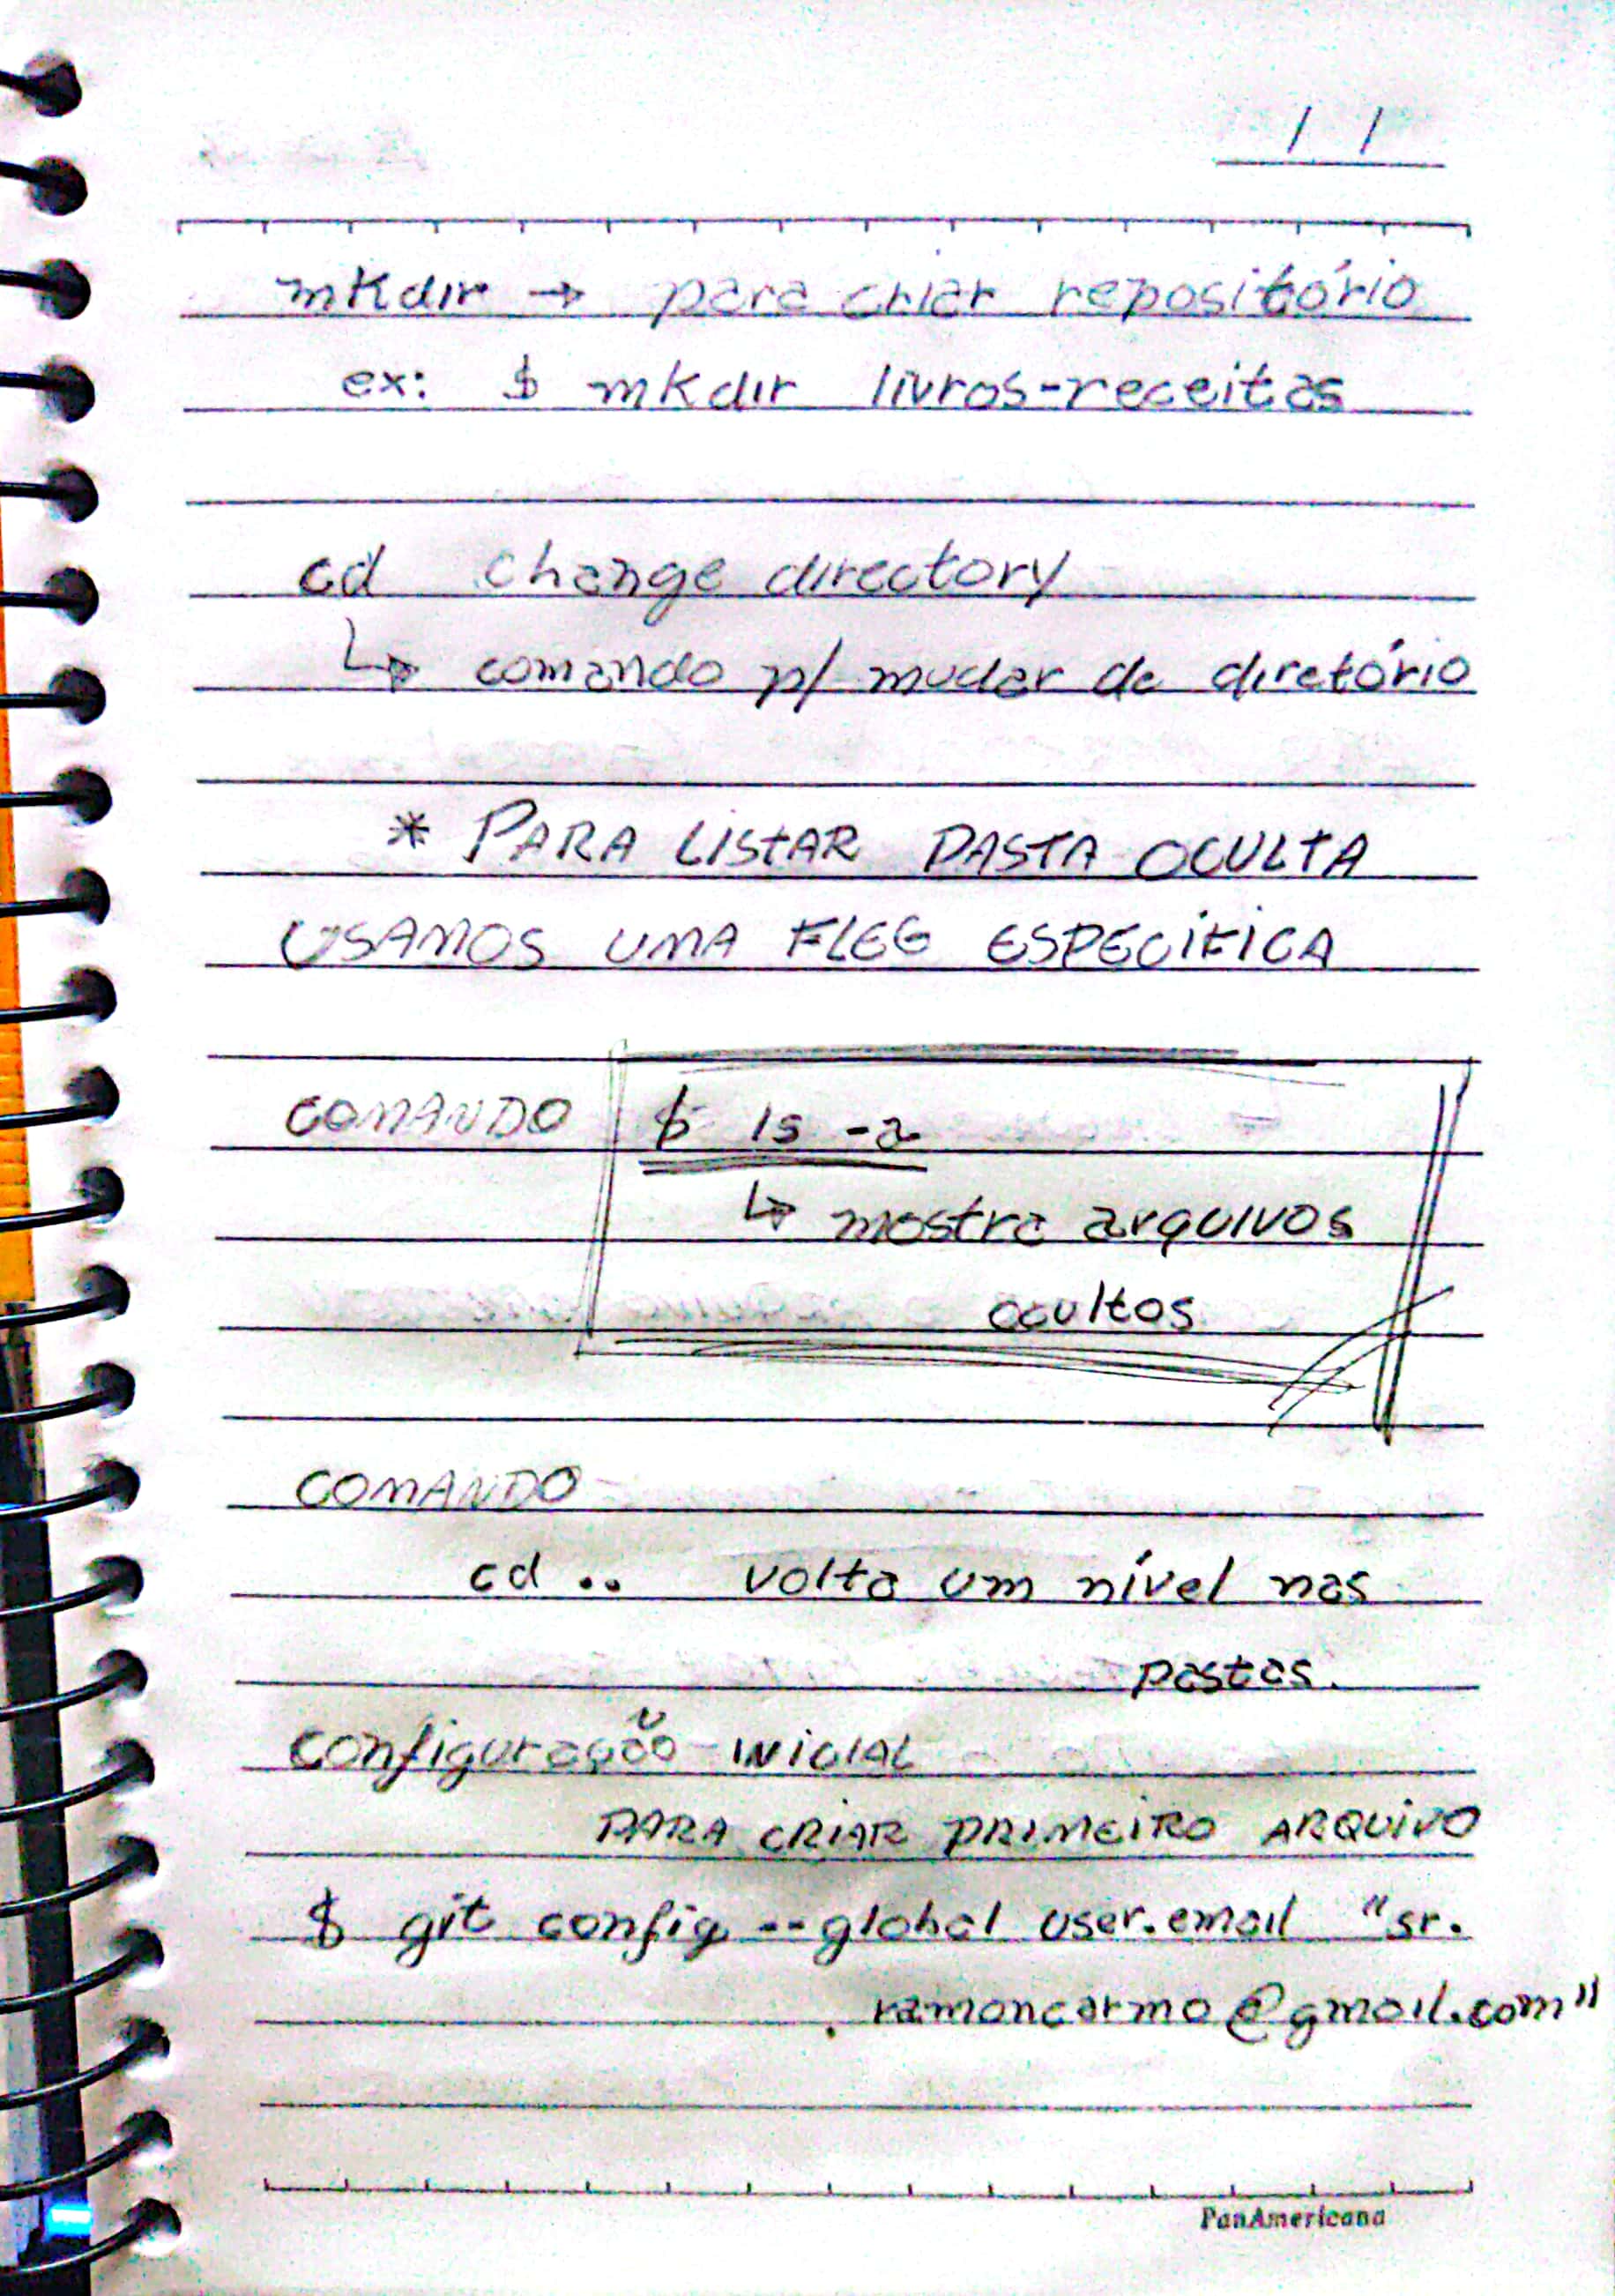 / /
mkdir → para criar repositório
ex: $ mkdir livros-receitas
cd change directory
↳ comando p/ mudar de diretório
* PARA LISTAR PASTA OCULTA
USAMOS UMA FLEG ESPECÍFICA
COMANDO $ ls -a
↳ mostra arquivos
ocultos
COMANDO
cd .. volta um nível nas
pastas.
configuração INICIAL
PARA CRIAR PRIMEIRO ARQUIVO
$ git config --global user.email "sr.
. ramoncarmo@gmail.com"
PanAmericana